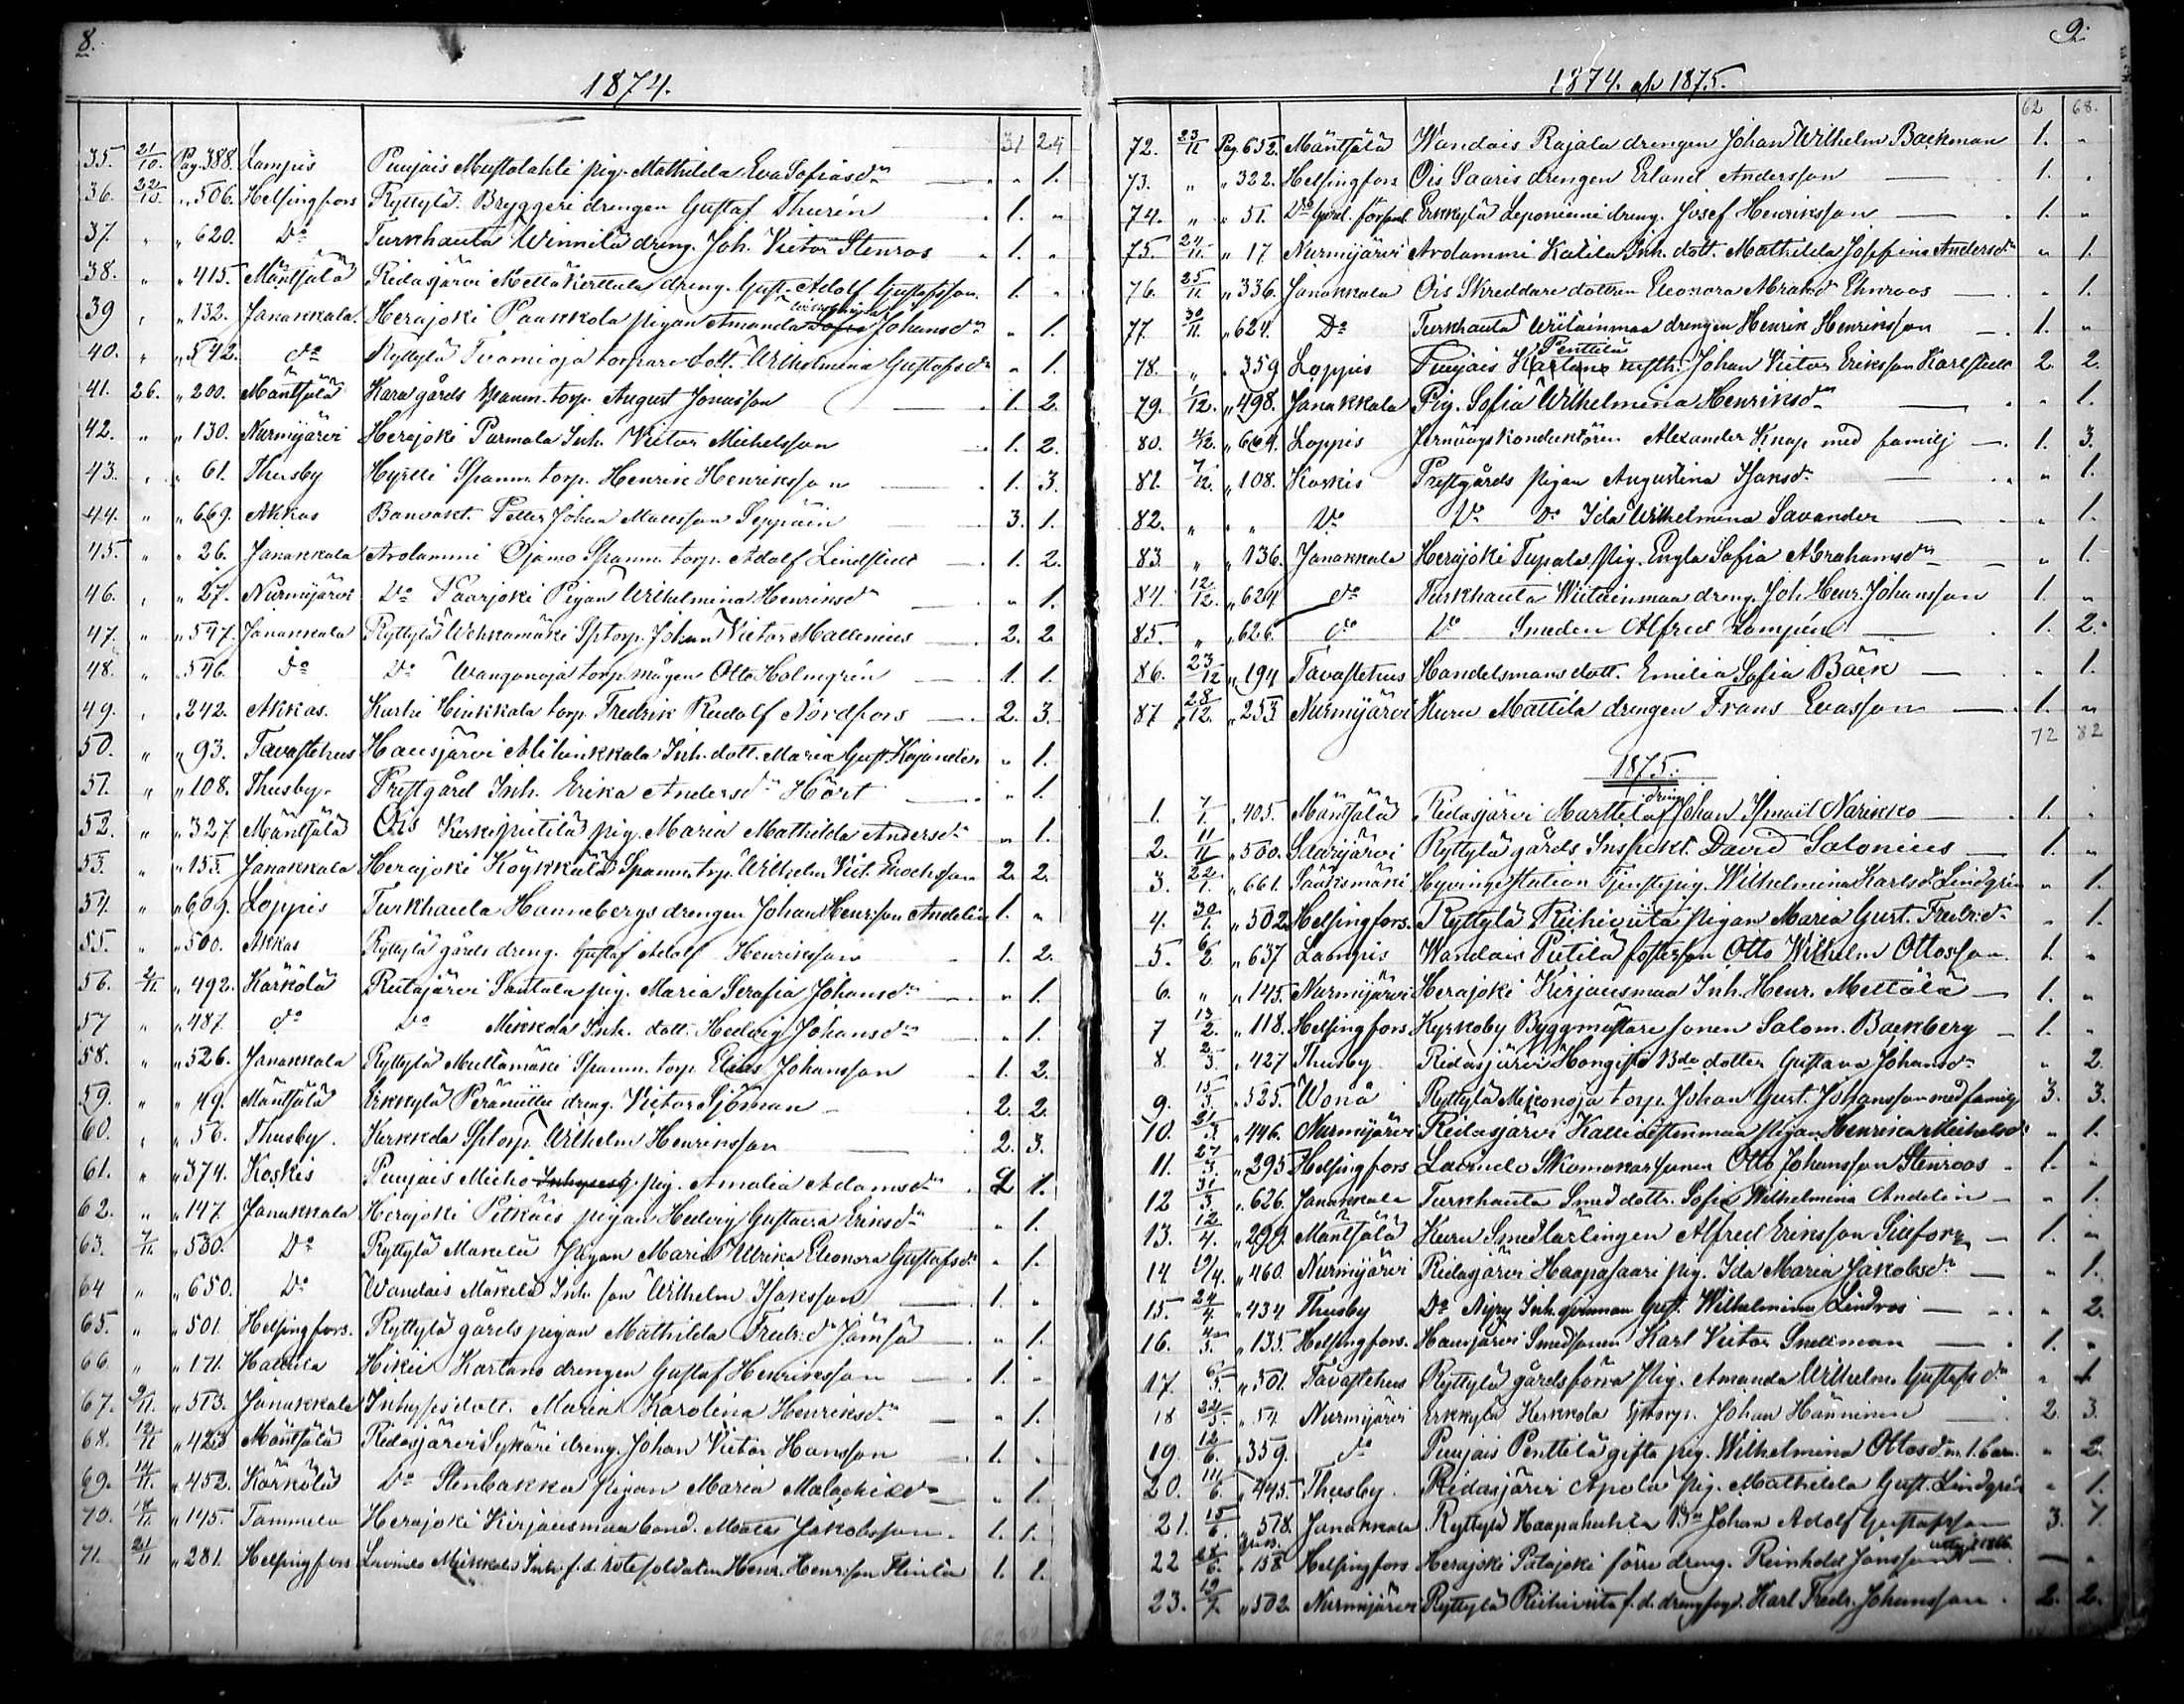 8.
1874.
31 24
35. 21/10. Pag. 388. Lampis Puujais Mustalahti pig. Mathilda Eva Sofiasdr " 1.
36. 22/10. " 506. Helsingfors Ryttylä Bryggeri drengen Gustaf Thurén 1. "
37. " " 620. Do Turkhauta Winnilä dreng. Joh. Victor Stenroos 1. "
38. " " 415. Mäntsälä Ridasjärvi Mettäkerttula dreng. Gust. Adolf Gustafsson 1. "
39 " " 132. Janakkala. Herajoki Paakkola pigan Amanda Sofia Johansdr " 1.
40. " " 542. do Ryttylä Tuomioja torpare dott. Wilhelmina Gustafsdr " 1.
41. 26. " 200. Mäntsälä Kara gårds Spanm. torp. August Jonasson 1. 2.
42. " " 130. Nurmijärvi Herajoki Parmala Inh. Victor Michelsson 1. 2.
43. " " 61. Thusby Hyrlli Spanm. torp. Henrik Henriksson 1. 3.
44. " " 669. Akkas Banvakt. Petter Johan Mattsson Seppäin 3. 1.
45. " " 26. Janakkala Arolammi Ojamo Spanm. torp. Adolf Lindstedt 1. 2.
46. " " 27. Nurmijärvi Do Paarjoki Pigan Wilhelmina Henriksdr " 1.
47. " " 547. Janakkala Ryttylä Wehkamäki Sptorp. Johan Victor Mallenius 2. 2.
48. " " 546. do Do Wanganoja torp. mågen Otto Holmgrén 1. 1.
49. " " 242. Akkas. Karhi Hinkkala torp. Fredrik Rudolf Nordfors 2. 3.
50. " " 93. Tavastehus Hausjärvi Alitinkkala Inh. dott. Maria Gust. Kajander " 1.
51. " " 108. Thusby. Prestgård Inh. Erika Andersdr Hört " 1.
52. " " 327. Mäntsälä Ois Keskipietilä pig. Maria Mathilda Andersdr " 1.
53. " " 155. Janakkala Herajoki Köykkälä Spanm. torp. Wilhelm Vict. Enochsson 2. 2.
54. " " 609. Loppis Turkhauta Hannebergs drengen Johan Henrsson Andelin 1. "
55. " " 500. Akkas Ryttylä gårds dreng. Gustaf Adolf Henriksson 1. 2.
56. 2/11. " 492. Kärkölä Ridasjärvi Santala pig. Maria Serafia Johansdr " 1.
57 " " 487. do Do Mikkola Inh. dott. Hedvig Johansdr " 1.
58. " " 526. Janakkala Ryttylä Mullämäki Spanm. torp. Elias Johansson 1. 2.
59. " " 49. Mäntsälä Erkkylä dreng. Victor Sjöman 2. 2.
60. " " 56. Thusby. Kerkkola Sptorp. Wilhelm Henriksson 2. 3.
61. " " 374. Koskis Puujais Mieho pig. Amalia Adamsdr 1.
62. " " 147. Janakkala Herajoki Pitkäis pigan Hedvig Gustava Eriksdr " 1.
63. 7/11. " 530. Do Ryttylä Mäkelä Pigan Maria Ulrika Eleonora Gustafsdr " 1.
64 " " 650. Do Wandais Mäkelä Inh. son Wilhelm Isaksson 1. "
65. " " 501. Helsingfors. Ryttylä gårds pigan Mathilda Fredr.dr Jämsä " 1.
66. " " 171. Hattula Hikiä Kartano drengen Gustaf Henriksson 1. "
67. 9/11. " 513. Janakkala Inhysesdott. Maria Karolina Henriksdr " 1.
68. 12/11 " 423 Mäntsälä Ridasjärvi Sykäri dreng. Johan Victor Hansson 1. "
69. 14/11. " 452. Kärkölä Do Stenbakka pigan Maria Malachiedr " 1.
70. 18/11. " 145. Tammela Herajoki Kirjausmaa bond. Matts Jakobsson. 1. 1.
71. 21/11 " 281. Helsingfors Lavinto Mikkola Inh. f.d. rotesoldaten Henr. Henrsson Flintä 1. 1.
9.
1874. och 1875.
62 68.
72. 23/11 Pag. 652. Mäntsälä Wandais Rajala drengen Johan Wilhelm Backman 1. "
73. " " 322. Helsingfors Ois Saaris drengen Erland Andersson 1. "
74. " " 51. Erkkylä Leponiemi dreng. Josef Henriksson 1. "
75. 24/11. " 17 Nurmijärvi Arolammi Katila Inh. dott. Mathilda Josefina Andersdr " 1.
76. 25/11. " 336. Janakkala Ois Skreddare dottren Eleonora Abrahdr Ehnroos " 1.
77. 30/11. " 624. Do Turkhauta Wiitainmaa drengen Henrik Henriksson 1. "
Penttilä
78. " " 359 Loppis Puujais Kartano Johan Victor Eriksson Karlstedt 2. 2.
79. 1/12. " 498. Janakkala Pig. Sofia Wilhelmina Henriksdr " 1.
80. 4/12. " 664. Loppis Jernvägskonduktören Alexander Knap med familj 1. 3.
81. 7/12. " 108. Koskis Prestgårds pigan Augustina Isaksdr " 1.
82. " " " Do Do Do Ida Wilhelmina Savander " 1.
83. " " 136. Janakkala Herajoki Tupala Pig. Engla Sofia Abrahamsdr " 1.
84. 12/12. " 624 do Turkhauta Wiitainmaa dreng. Joh. Henr. Johansson 1. "
85. " " 626. do Do Smeden Alfred Lampén 1. 2.
86. 23/12 " 194 Tavastehus Handelsmans dott. Emilia Sofia Bäck " 1.
87 28/12. " 253 Nurmijärvi Kuru Mattila drengen Frans Evasson 1. "
72 82
1875.
1. 7/1. " 405. Mäntsälä Ridasjärvi Marttila dreng Johan Ismail Narikko 1. "
2. 11/11 " 500. Saarijärvi Ryttylä gårds Inspekt. David Salonius 1. "
3. 22/1. " 661. Sääksmäki Hyvinge Station Tjenstepig. Wilhelmina Karlsdr Lindgrén " 1.
4. 30/1. " 502 Helsingfors. Ryttylä Riihiviita pigan Maria Gust. Fredr.dr " 1.
5. 6/2. " 637 Lampis Wandais Pietilä fosterson Otto Wilhelm Ottosson. 1. "
6. " " 145. Nurmijärvi Herajoki Kirjausmaa Inh. Henr. Mettälä 1. "
7 13/2. " 118. Helsingfors Kyrkoby Byggmästare sonen Salom. Backberg 1. "
8. 2/3. " 427 Thusby. Ridasjärvi Hongisto Bde dotter Gustava Johansdr " 2.
9. 15/3. " 525. Wånå Ryttylä Mikonoja torp. Johan Gust. Johansson med familj 3. 3.
10. 21/3. " 446. Nurmijärvi Ridasjärvi Kallioistenmaa pigan Henrica Michelsdr " 1.
11. 27/3. " 295 Helsingfors Lavinto Skomakarsonen Otto Johansson Stenroos 1. "
12 31/3. " 626. Janakkala Turkhauta Smed dottr. Sofia Wilhelmina Andelin " 1.
13. 12/4. " 299. Mäntsälä Kuru Smedlärlingen Alfred Eriksson Sidfors 1. "
14. 19/4. " 460. Nurmijärvi Ridasjärvi Haapasaari pig. Ida Maria Jakobsdr " 1.
15. 24/4. " 434 Thusby Do Äijry Inh. qvinnan Gust. Wilhelmina Lindroos " 2.
16. 4/5. " 135. Helsingfors. Hausjärvi Smedsonen Karl Victor Snellman 1. "
17. 6/5. " 501. Tavastehus Ryttylä gårds förra Pig. Amanda Wilhelm. Gustafsdr " 1
18 22/5. " 54 Nurmijärvi Erkkylä Kerkkola Sptorp. Johan Hänninen 2. 3.
19. 12/6. " 359. do Puujais Penttilä gifta pig. Wilhelmina Ottosdr m. 1. barn. " 2.
20. 14/6. " 445. Thusby. Ridasjärvi Apola Pig. Mathilda Gust. Lindgrén " 1.
21. 15/6. " 518. Janakkala Ryttylä Haapahuhta Bde Johan Adolf Gustafsson 3. 7.
22 28/6. " 158 Helsingfors Herajoki Patajoki förre dreng. Reinhold Jansson — "
23. 19/7. " 502. Nurmijärvi Ryttylä Riihiviita f.d. drengfogd. Karl Fredr. Johansson. 2. 2.